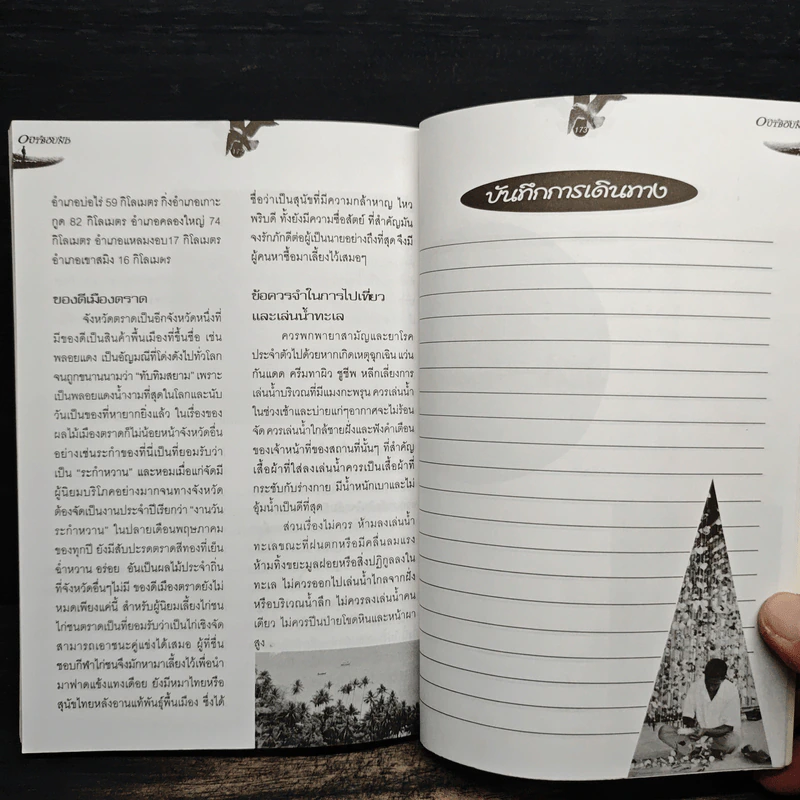 OUTBOUND
อำเภอบ่อไร่ 59 กิโลเมตร กิ่งอำเภอเกาะ
กูด 82 กิโลเมตร อำเภอคลองใหญ่ 74
กิโลเมตร อำเภอแหลมงอบ17 กิโลเมตร
อำเภอเขาสมิง 16 กิโลเมตร
ของดีเมืองตราด
จังหวัดตราดเป็นอีกจังหวัดหนึ่งที่
มีของดีเป็นสินค้าพื้นเมืองที่ขึ้นชื่อ เช่น
พลอยแดง เป็นอัญมณีที่โด่งดังไปทั่วโลก
จนถูกขนานนามว่า “ทับทิมสยาม” เพราะ
เป็นพลอยแดงน้ำงามที่สุดในโลกและนับ
วันเป็นของที่หายากยิ่งแล้ว ในเรื่องของ
ผลไม้เมืองตราดก็ไม่น้อยหน้าจังหวัดอื่น
อย่างเช่นระกำของที่นี่เป็นที่ยอมรับว่า
เป็น “ระกำหวาน” และหอมเมื่อแก่จัดมี
ผู้นิยมบริโภคอย่างมากจนทางจังหวัด
ต้องจัดเป็นงานประจำปีเรียกว่า “งานวัน
ระกำหวาน” ในปลายเดือนพฤษภาคม
ของทุกปี ยังมีสับปะรดตราดสีทองที่เย็น
ฉ่ำหวาน อร่อย อันเป็นผลไม้ประจำถิ่น
ที่จังหวัดอื่นๆไม่มี ของดีเมืองตราดยังไม่
หมดเพียงแค่นี้ สำหรับผู้นิยมเลี้ยงไก่ชน
ไก่ชนตราดเป็นที่ยอมรับว่าเป็นไก่เชิงจัด
สามารถเอาชนะคู่แข่งได้เสมอ ผู้ที่ชื่น
ชอบกีฬาไก่ชนจึงมักหามาเลี้ยงไว้เพื่อนำ
มาฟาดแข้งแทงเดือย ยังมีหมาไทยหรือ
สุนัขไทยหลังอานแท้พันธุ์พื้นเมือง ซึ่งได้
ชื่อว่าเป็นสุนัขที่มีความกล้าหาญ ไหว
พริบดี ทั้งยังมีความซื่อสัตย์ ที่สำคัญมัน
จงรักภักดีต่อผู้เป็นนายอย่างถึงที่สุด จึงมี
ผู้คนหาซื้อมาเลี้ยงไว้เสมอๆ
ข้อควรจำในการไปเที่ยว
และเล่นน้ำทะเล
ควรพกพายาสามัญและยาโรค
ประจำตัวไปด้วยหากเกิดเหตุฉุกเฉิน แว่น
กันแดด ครีมทาผิว ชูชีพ หลีกเลี่ยงการ
เล่นน้ำบริเวณที่มีแมงกะพรุน ควรเล่นน้ำ
ในช่วงเช้าและบ่ายแก่ๆอากาศจะไม่ร้อน
จัด ควรเล่นน้ำใกล้ชายฝั่งและฟังคำเตือน
ของเจ้าหน้าที่ของสถานที่นั้นๆ ที่สำคัญ
เสื้อผ้าที่ใส่ลงเล่นน้ำควรเป็นเสื้อผ้าที่
กระชับกับร่างกาย มีน้ำหนักเบาและไม่
อุ้มน้ำเป็นดีที่สุด
ส่วนเรื่องไม่ควร ห้ามลงเล่นน้ำ
ทะเลขณะที่ฝนตกหรือมีคลื่นลมแรง
ห้ามทิ้งขยะมูลฝอยหรือสิ่งปฏิกูลลงใน
ทะเล ไม่ควรออกไปเล่นน้ำไกลจากฝั่ง
หรือบริเวณน้ำลึก ไม่ควรลงเล่นน้ำคน
เดียว ไม่ควรปีนป่ายโขดหินและหน้าผา
สูง .
173
บันทึกการเดินทาง